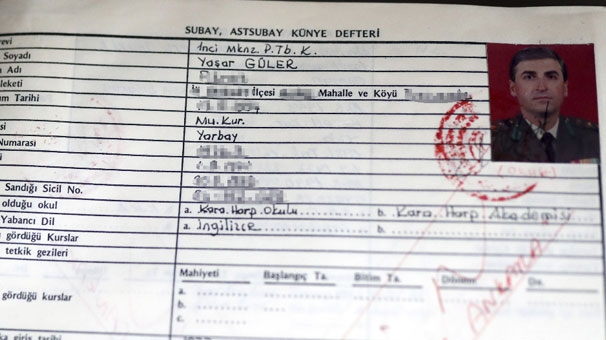 SUBAY, ASTSUBAY KÜNYE DEFTERİ
evi İnci Mknz. P. Tb. K.
Soyadı Yaşar GÜLER
Adı
leketi İlçesi Mahalle ve Köyü
um Tarihi
si Mu. Kur.
Numarası Yarbay
Sandığı Sicil No.
olduğu okul a. Kara. Harp. Okulu b. Kara. Harp Akademisi
Yabancı Dil a. İngilizce b.
gördüğü Kurslar
tetkik gezileri
Mahiyeti Başlangıç Ta. Bitim Ta.
gördüğü kurslar a.
b.
c.
ANKARA